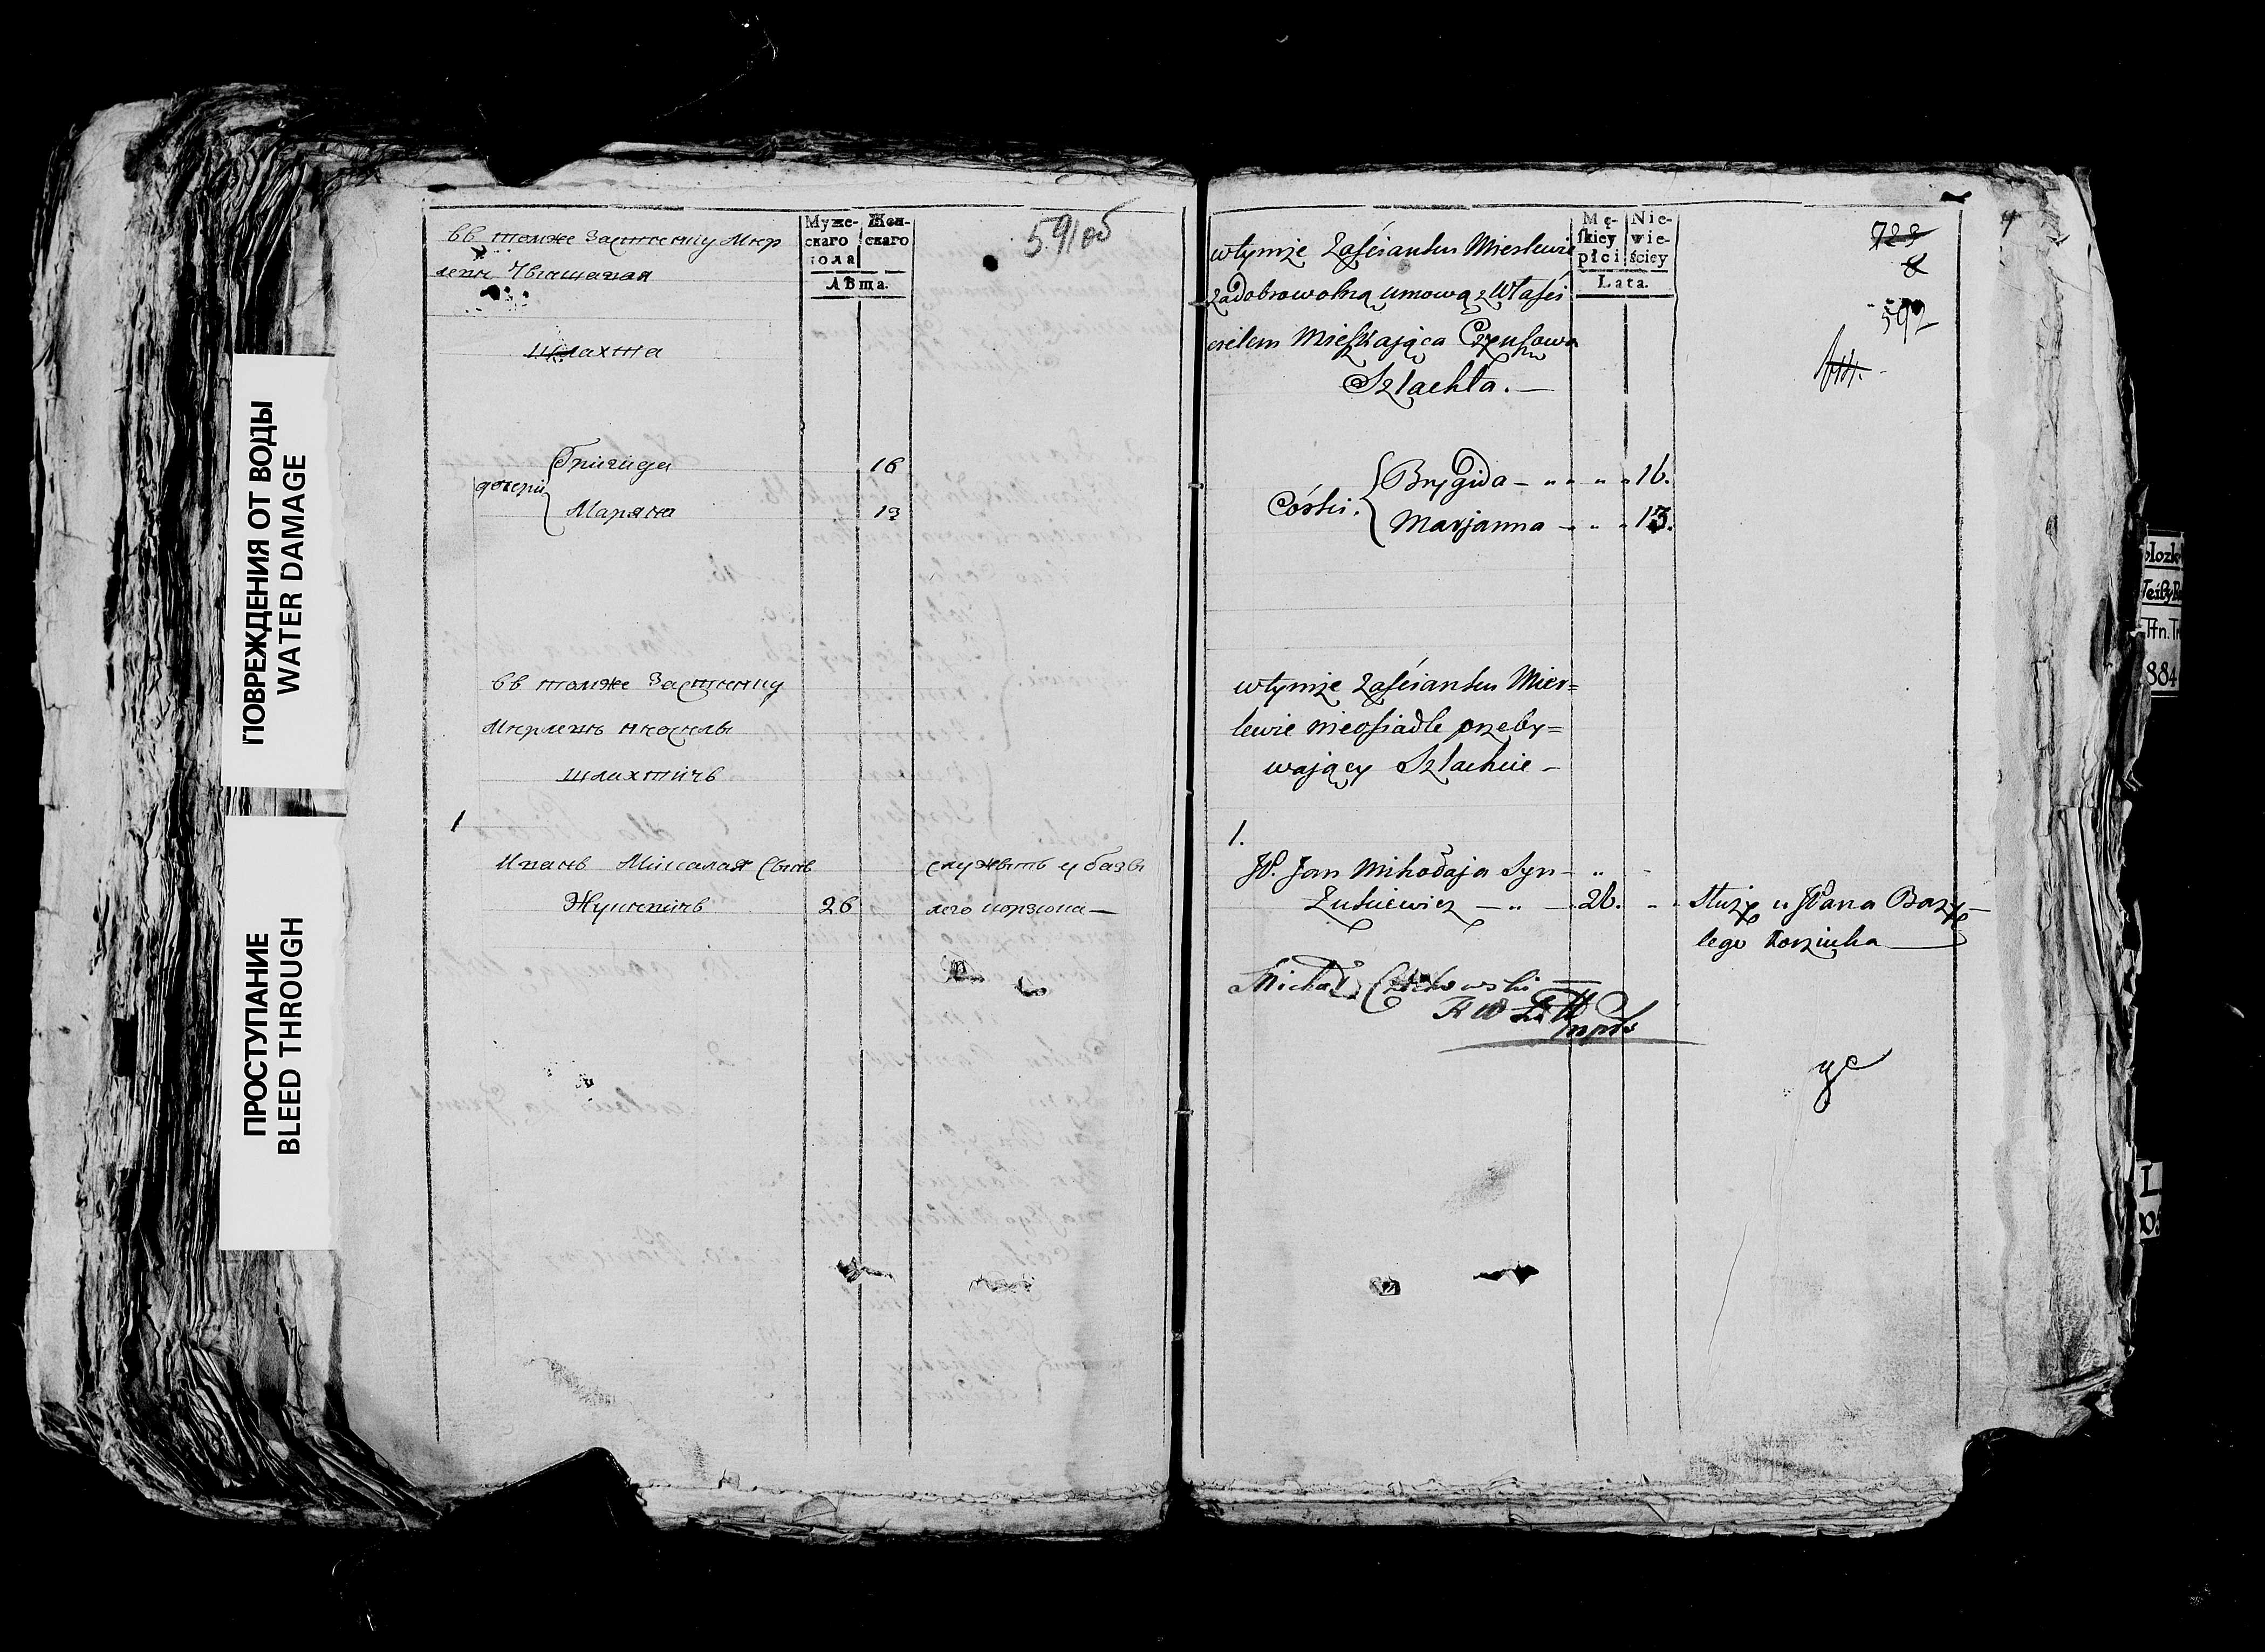 ПОВРЕЖДЕНИЯ ОТ ВОДЫ
WATER DAMAGE
ПРОСТУПАНИЕ
BLEED THROUGH
въ томже Застенку Мир
Муже-
скаго
пола
Жен-
скаго
Лѣта.
591об
шлахта
дочери
Бригида 16
Маряна 13
въ томже Застенку
шлахтичъ
1
Иванъ Миколая Сынъ
26
служытъ у базы
лего корзюка —
wtymże Zaścianku Mierlewie
zadobrowolną umową z Właści
cielem Mieszkająca Czynszowa
Szlachta. —
Mę-
skiey
płci
Nie-
wie-
ściey
Lata.
723
592
Córki.
Brygida — 16.
Marjanna — 13.
wtymże Zaścianku Mier=
lewie nieosiadle przeby=
wający Szlachcic —
1.
JP. Jan Mikołaja Syn —
Żukiewicz — 26.
służy u JPana Bazy-
lego Korziuka
Michał